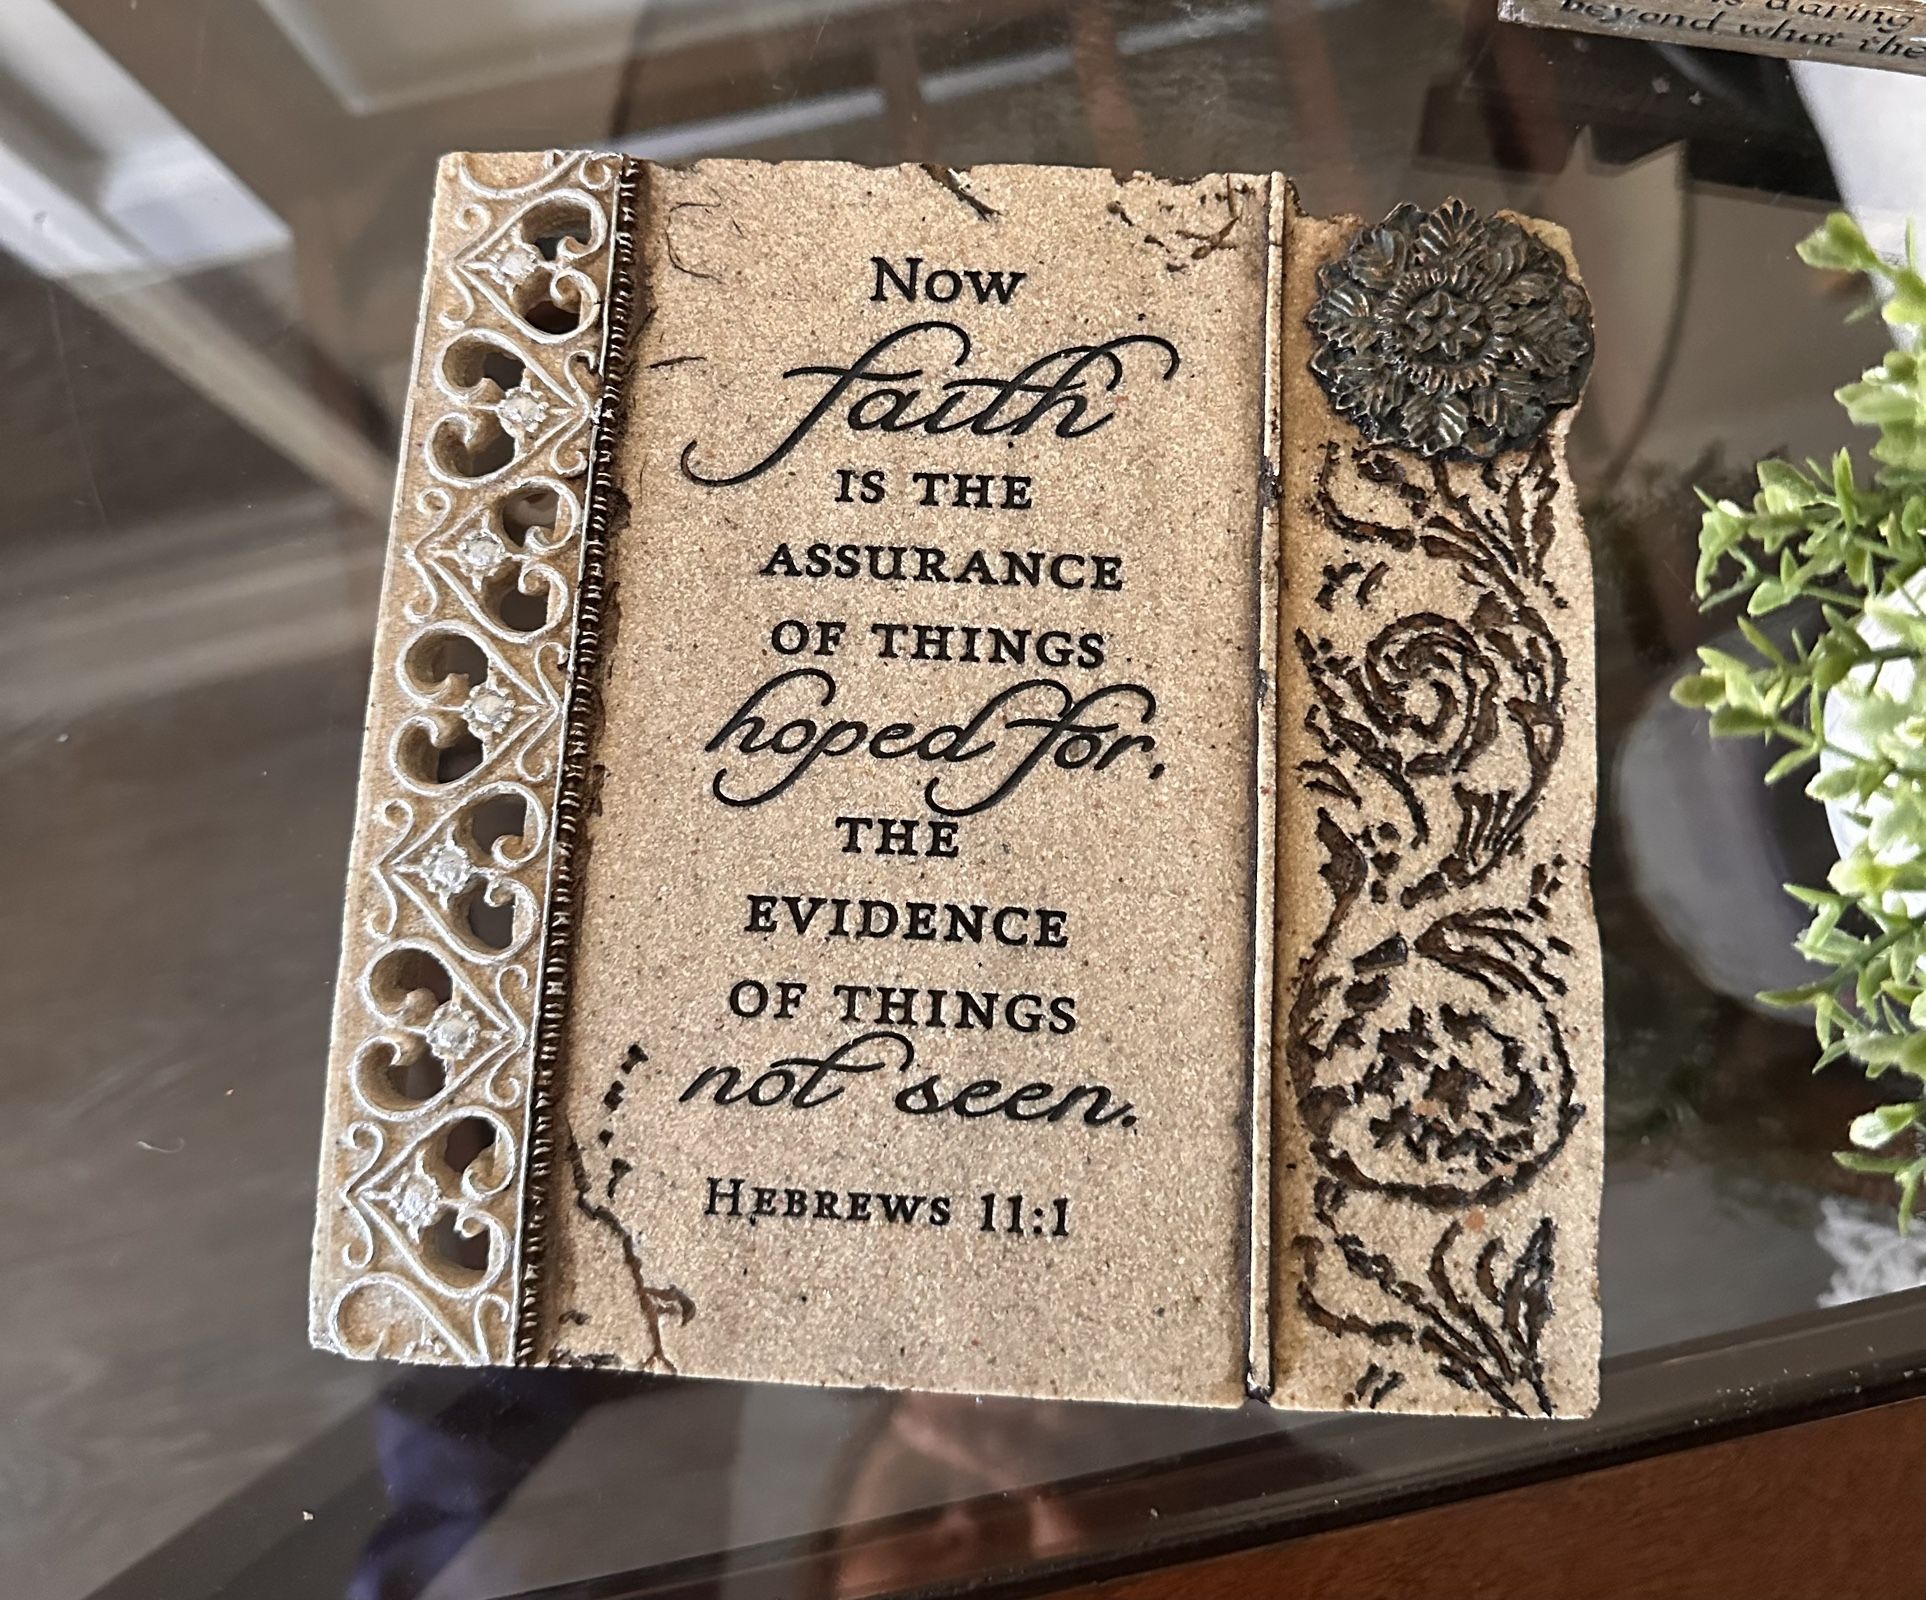 is daring
beyond what the
Now
faith
IS THE
ASSURANCE
OF THINGS
hoped for,
THE
EVIDENCE
OF THINGS
not seen.
HEBREWS 11:1